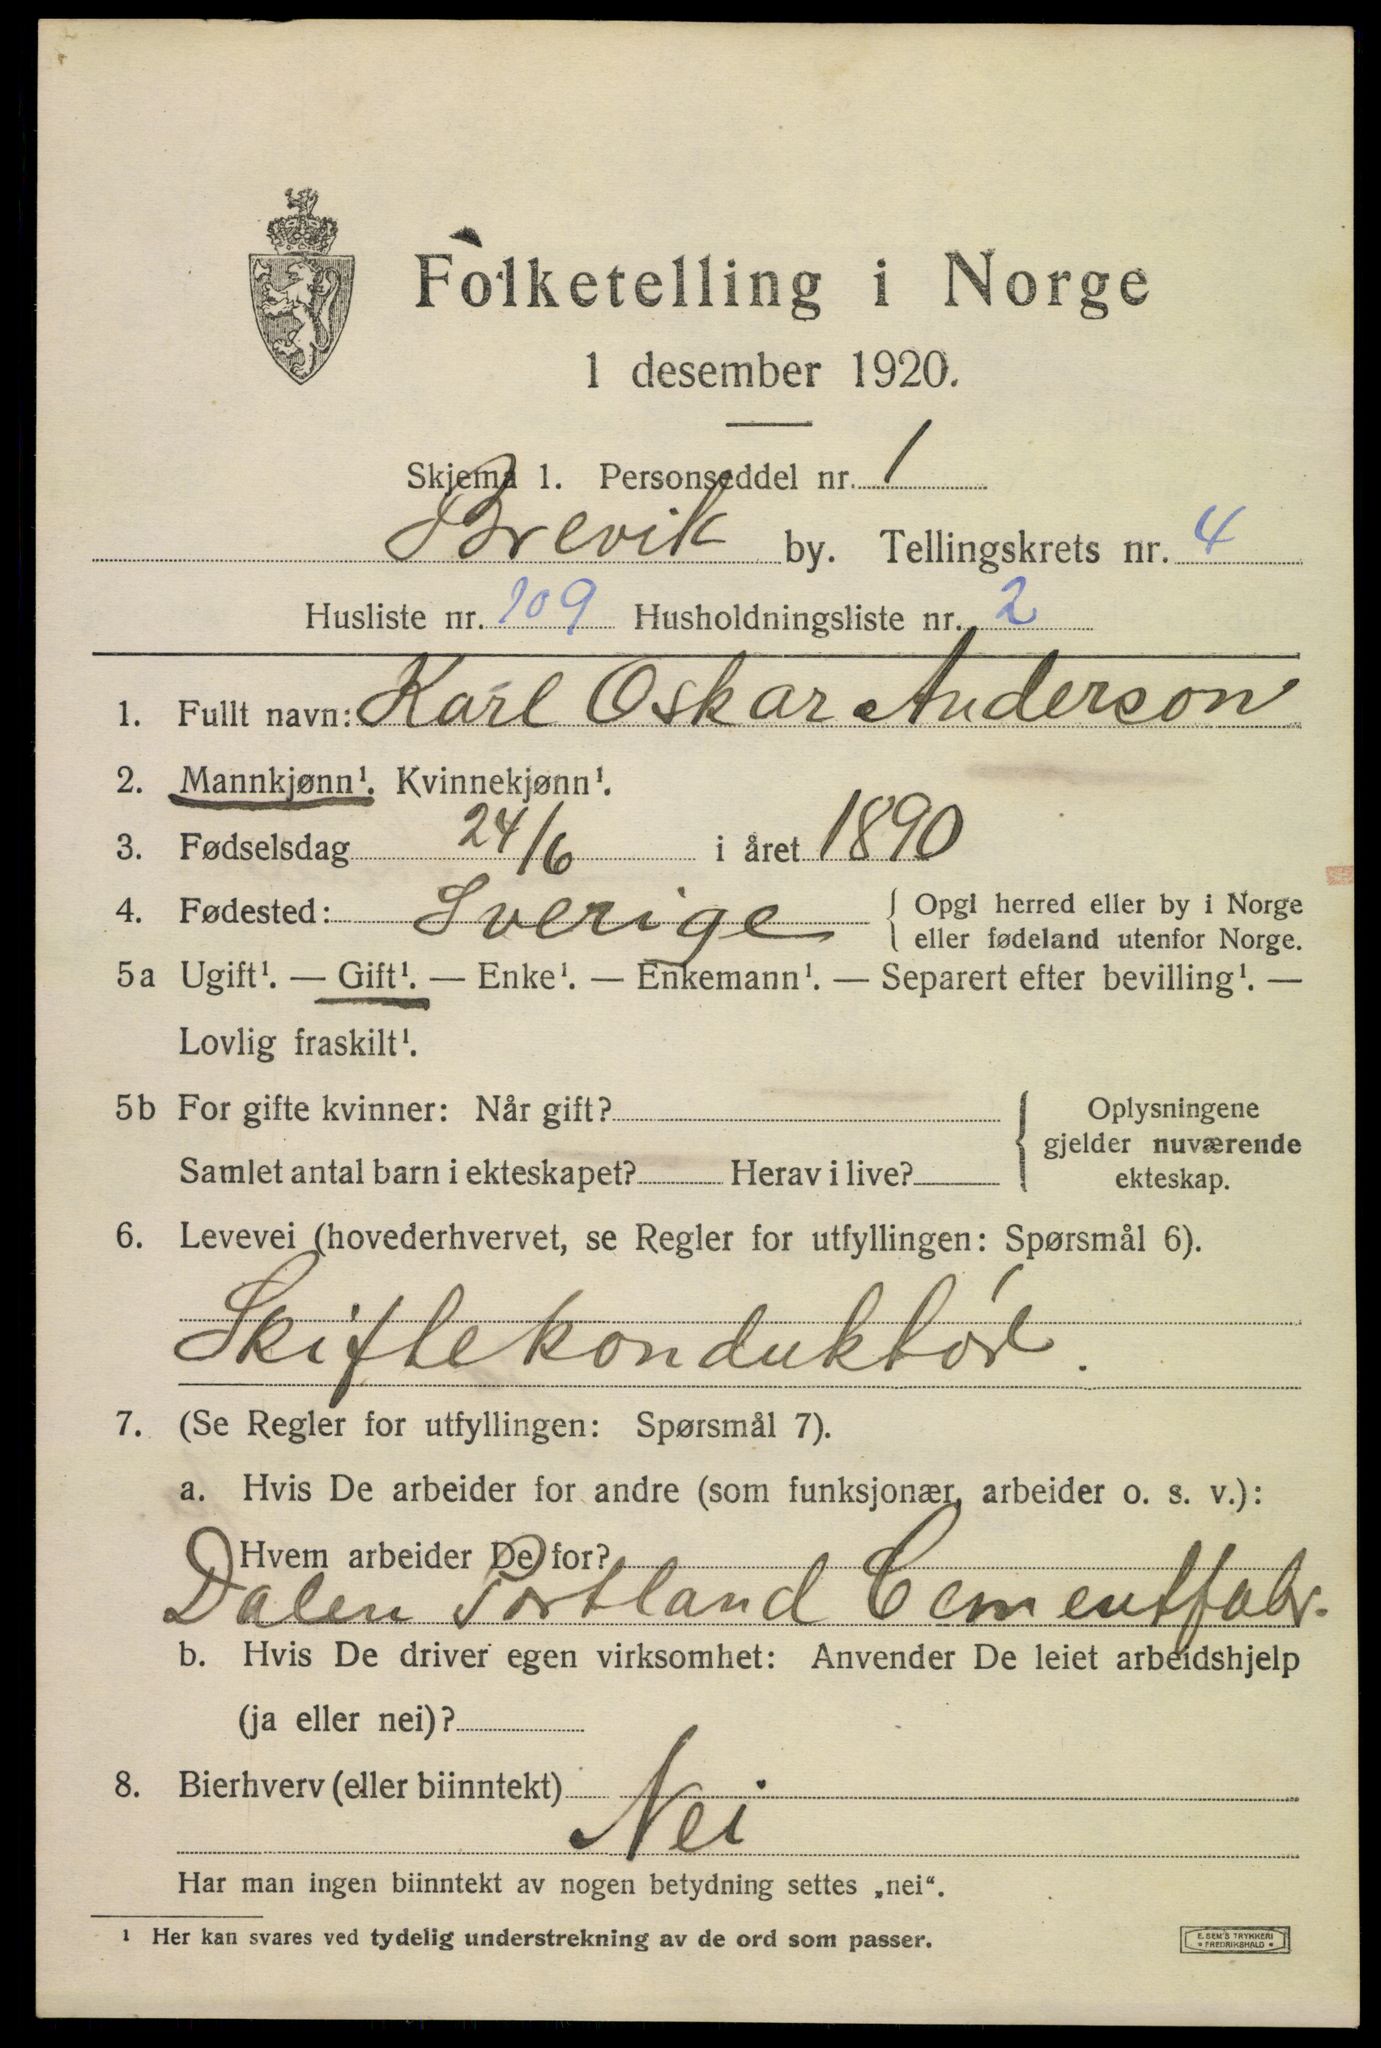 Folketelling i Norge
1 desember 1920.
Skjema 1. Personseddel nr. 1
Brevik by. Tellingskrets nr. 4
Husliste nr. 109 Husholdningsliste nr. 2
1. Fullt navn: Karl Oskar Anderson
2. Mannkjønn¹. Kvinnekjønn¹.
3. Fødselsdag 24/6 i året 1890
4. Fødested: Sverige { Opgi herred eller by i Norge
eller fødeland utenfor Norge.
5a Ugift¹. — Gift¹. — Enke¹. — Enkemann¹. — Separert efter bevilling¹. —
Lovlig fraskilt¹.
5b For gifte kvinner: Når gift?
Samlet antal barn i ekteskapet? Herav i live?
{ Oplysningene
gjelder nuværende
ekteskap.
6. Levevei (hovederhvervet, se Regler for utfyllingen: Spørsmål 6).
Skiftekonduktór.
7. (Se Regler for utfyllingen: Spørsmål 7).
a. Hvis De arbeider for andre (som funksjonær, arbeider o. s. v.):
Hvem arbeider De for?
Dalen Portland Cementfabr.
b. Hvis De driver egen virksomhet: Anvender De leiet arbeidshjelp
(ja eller nei)?
8. Bierhverv (eller biinntekt)
Nei
Har man ingen biinntekt av nogen betydning settes „nei“.
¹ Her kan svares ved tydelig understrekning av de ord som passer.
E. SEM'S TRYKKERI
• FREDRIKSHALD •